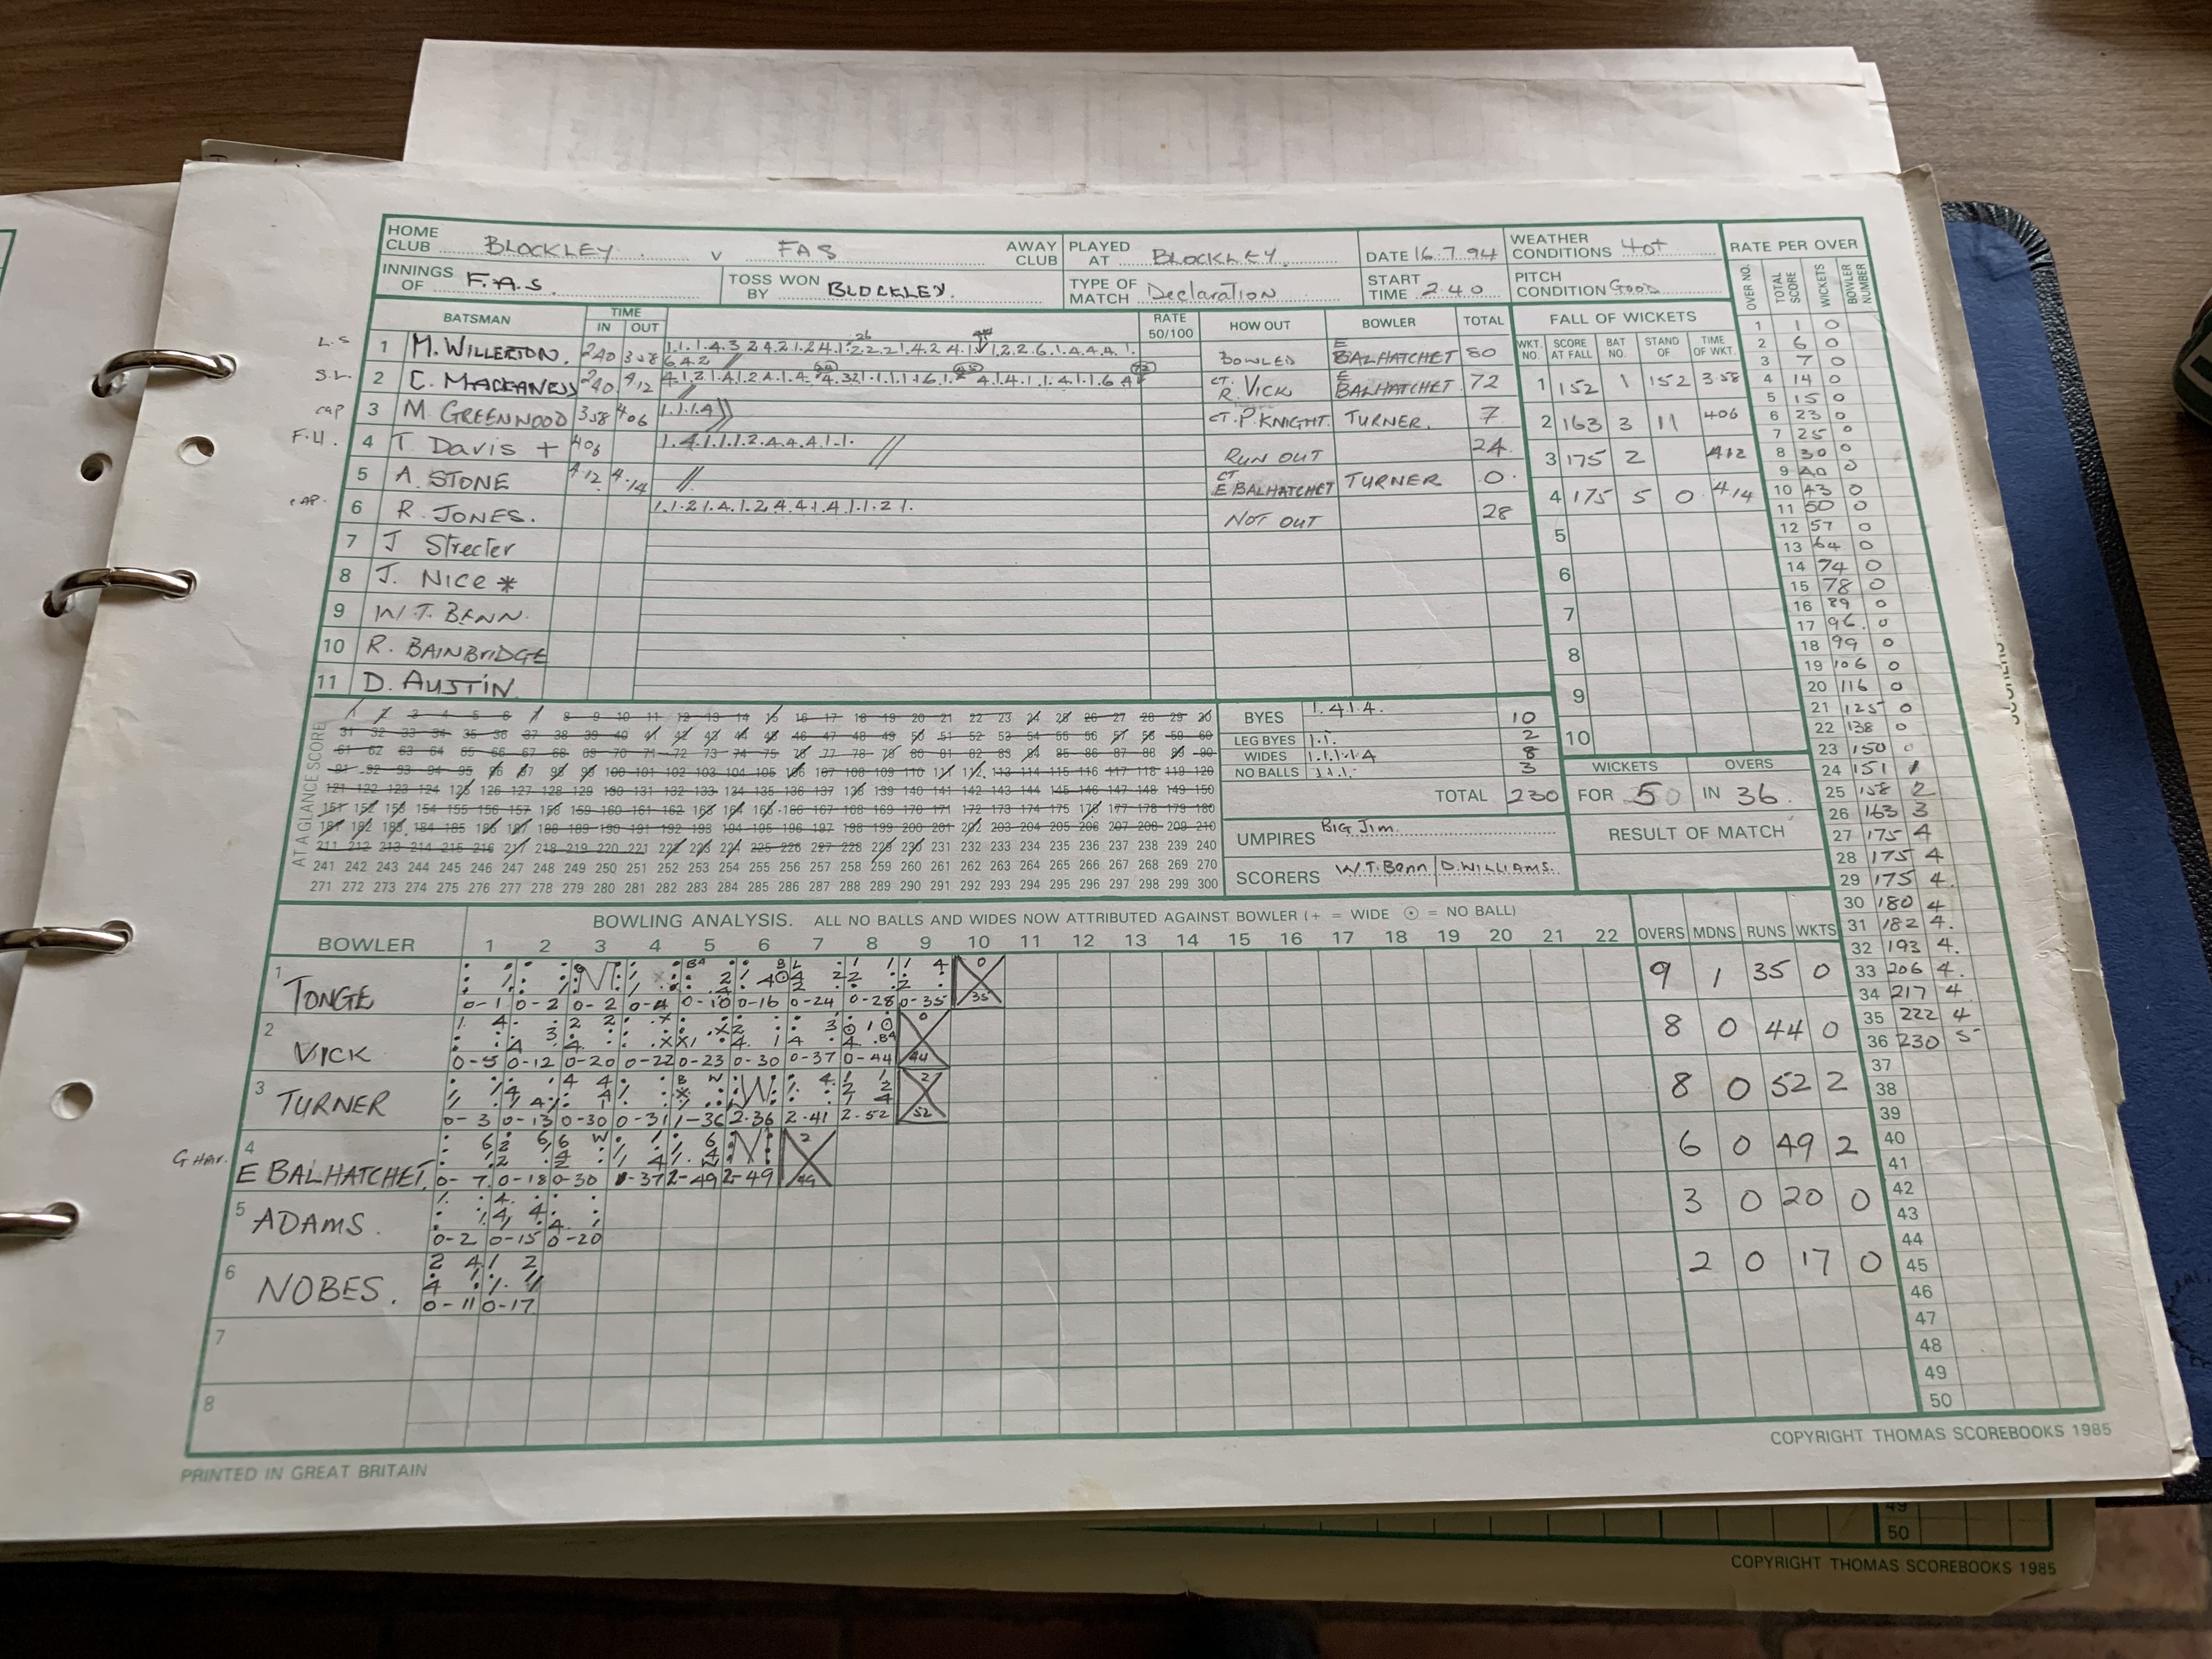 HOME CLUB BLOCKLEY v FAS AWAY CLUB PLAYED AT BLOCKLEY. DATE 16.7.94 WEATHER CONDITIONS 40+ RATE PER OVER
INNINGS OF F.A.S. TOSS WON BY BLOCKLEY. TYPE OF MATCH Declaration START TIME 2.40 PITCH CONDITION GOOD
OVER NO. TOTAL SCORE WICKETS BOWLER NUMBER
BATSMAN TIME IN OUT RATE 50/100 HOW OUT BOWLER TOTAL FALL OF WICKETS
WKT. NO. SCORE AT FALL BAT NO. STAND OF TIME OF WKT.
L.S 1 M. WILLERTON. 240 358 BOWLED E BALHATCHET 80
S.L. 2 C. MACKANESS 240 412 CT. R. VICK E BALHATCHET 72
cap 3 M. GREENWOOD 358 406 1.1.1.4 CT. P. KNIGHT. TURNER. 7
4 T. Davis + 406 1.4.1.1.1.2.4.4.4.1.1. RUN OUT 24
5 A. STONE 412 4.14 CT E BALHATCHET TURNER 0.
CAP. 6 R. JONES. 1.1.2.1.4.1.2.4.4.1.4.1.1.2.1. NOT OUT 28
7 J Streeter
8 J. NICE *
9 W.T. BENN.
10 R. BAINBRIDGE
11 D. AUSTIN.
1 152 1 152 3.58
2 163 3 11 406
3 175 2 412
4 175 5 0 4.14
5
6
7
8
9
10
AT A GLANCE SCORE
1 2 3 4 5 6 7 8 9 10 11 12 13 14 15 16 17 18 19 20 21 22 23 24 25 26 27 28 29 30
31 32 33 34 35 36 37 38 39 40 41 42 43 44 45 46 47 48 49 50 51 52 53 54 55 56 57 58 59 60
61 62 63 64 65 66 67 68 69 70 71 72 73 74 75 76 77 78 79 80 81 82 83 84 85 86 87 88 89 90
91 92 93 94 95 96 97 98 99 100 101 102 103 104 105 106 107 108 109 110 111 112 113 114 115 116 117 118 119 120
121 122 123 124 125 126 127 128 129 130 131 132 133 134 135 136 137 138 139 140 141 142 143 144 145 146 147 148 149 150
151 152 153 154 155 156 157 158 159 160 161 162 163 164 165 166 167 168 169 170 171 172 173 174 175 176 177 178 179 180
181 182 183 184 185 186 187 188 189 190 191 192 193 194 195 196 197 198 199 200 201 202 203 204 205 206 207 208 209 210
211 212 213 214 215 216 217 218 219 220 221 222 223 224 225 226 227 228 229 230 231 232 233 234 235 236 237 238 239 240
241 242 243 244 245 246 247 248 249 250 251 252 253 254 255 256 257 258 259 260 261 262 263 264 265 266 267 268 269 270
271 272 273 274 275 276 277 278 279 280 281 282 283 284 285 286 287 288 289 290 291 292 293 294 295 296 297 298 299 300
BYES 1.4.1.4. 10
LEG BYES 1.1. 2
WIDES 1.1.1.1.4 8
NO BALLS 1.1.1. 3
TOTAL 230
WICKETS OVERS
FOR 5 IN 36.
UMPIRES BIG JIM.
SCORERS W.T. Benn D. WILLIAMS.
RESULT OF MATCH
1 1 0
2 6 0
3 7 0
4 14 0
5 15 0
6 23 0
7 25 0
8 30 0
9 40 0
10 43 0
11 50 0
12 57 0
13 64 0
14 74 0
15 78 0
16 89 0
17 96. 0
18 99 0
19 106 0
20 116 0
21 125 0
22 138 0
23 150 0
24 151 1
25 158 2
26 163 3
27 175 4
28 175 4
29 175 4.
30 180 4
31 182 4.
32 193 4.
33 206 4.
34 217 4
35 222 4
36 230 5
37
38
39
40
41
42
43
44
45
46
47
48
49
50
BOWLING ANALYSIS. ALL NO BALLS AND WIDES NOW ATTRIBUTED AGAINST BOWLER (+ = WIDE ⊙ = NO BALL)
BOWLER 1 2 3 4 5 6 7 8 9 10 11 12 13 14 15 16 17 18 19 20 21 22 OVERS MDNS RUNS WKTS
1 TONGE 0-1 0-2 0-2 0-4 0-10 0-16 0-24 0-28 0-35 0 35 9 1 35 0
2 VICK 0-5 0-12 0-20 0-22 0-23 0-30 0-37 0-44 0 44 8 0 44 0
3 TURNER 0-3 0-13 0-30 0-31 1-36 2.36 2.41 2.52 2 52 8 0 52 2
G Hav. 4 E BALHATCHET. 0-7 0-18 0-30 -37 2-49 2-49 2 49 6 0 49 2
5 ADAMS. 0-2 0-15 0-20 3 0 20 0
6 NOBES. 0-11 0-17 2 0 17 0
7
8
PRINTED IN GREAT BRITAIN
COPYRIGHT THOMAS SCOREBOOKS 1985
49
50
COPYRIGHT THOMAS SCOREBOOKS 1985